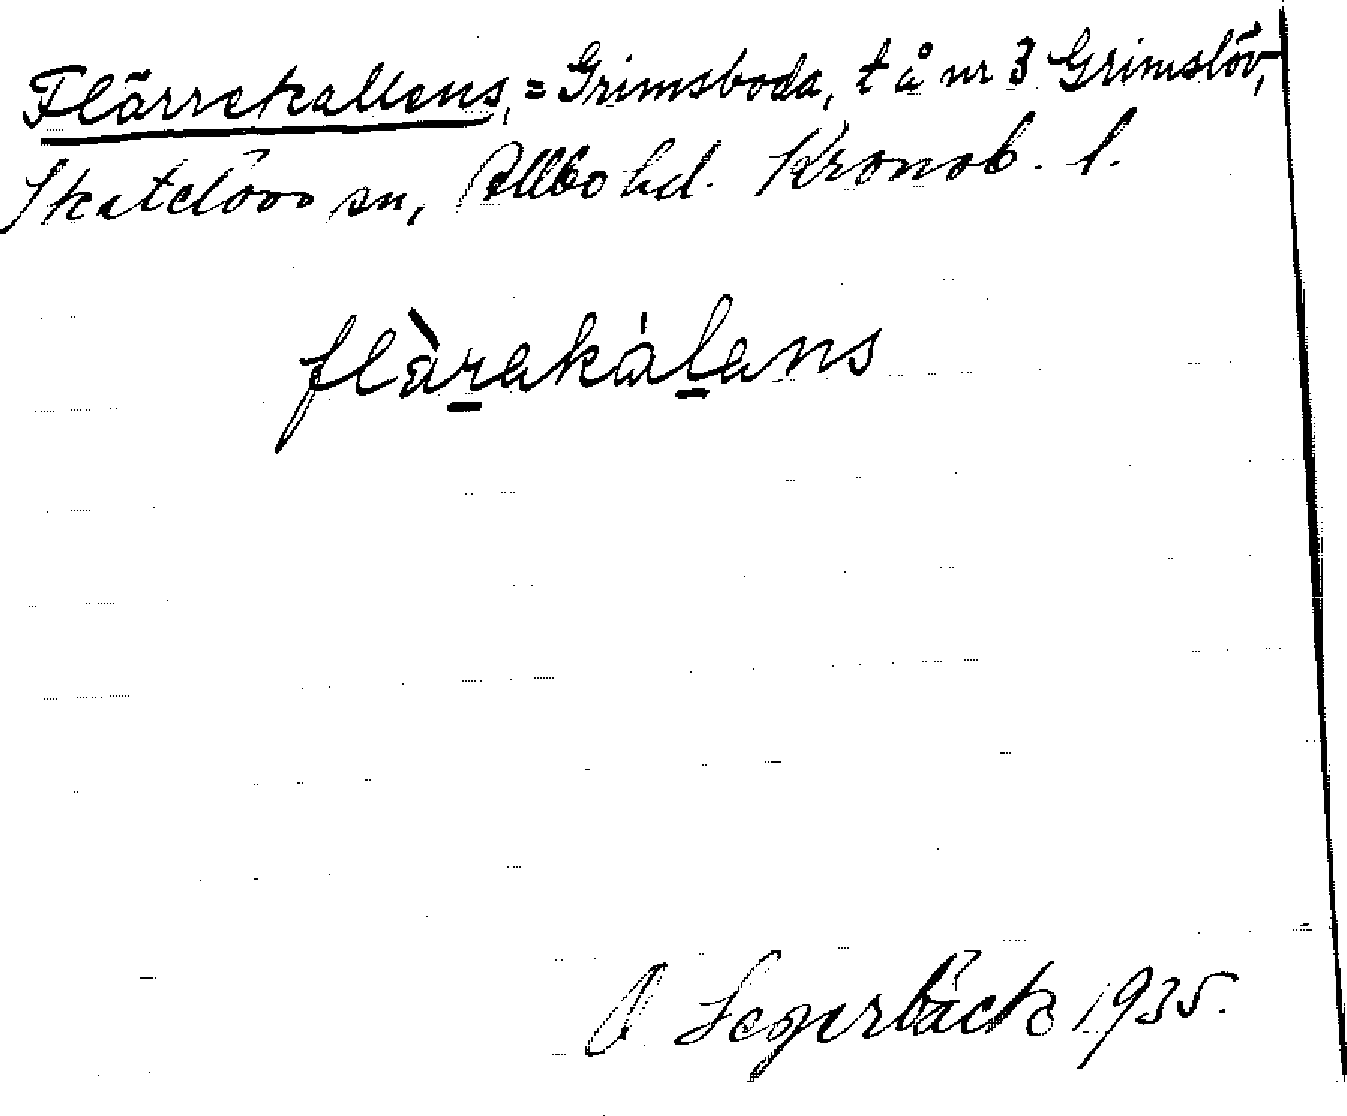 Flärrekallens, = Grimsboda, t å nr 3 Grimslöv,
Skatelövs sn, Allbo hd. Kronob. l.
flàrakálans
Segerbäck 1935.